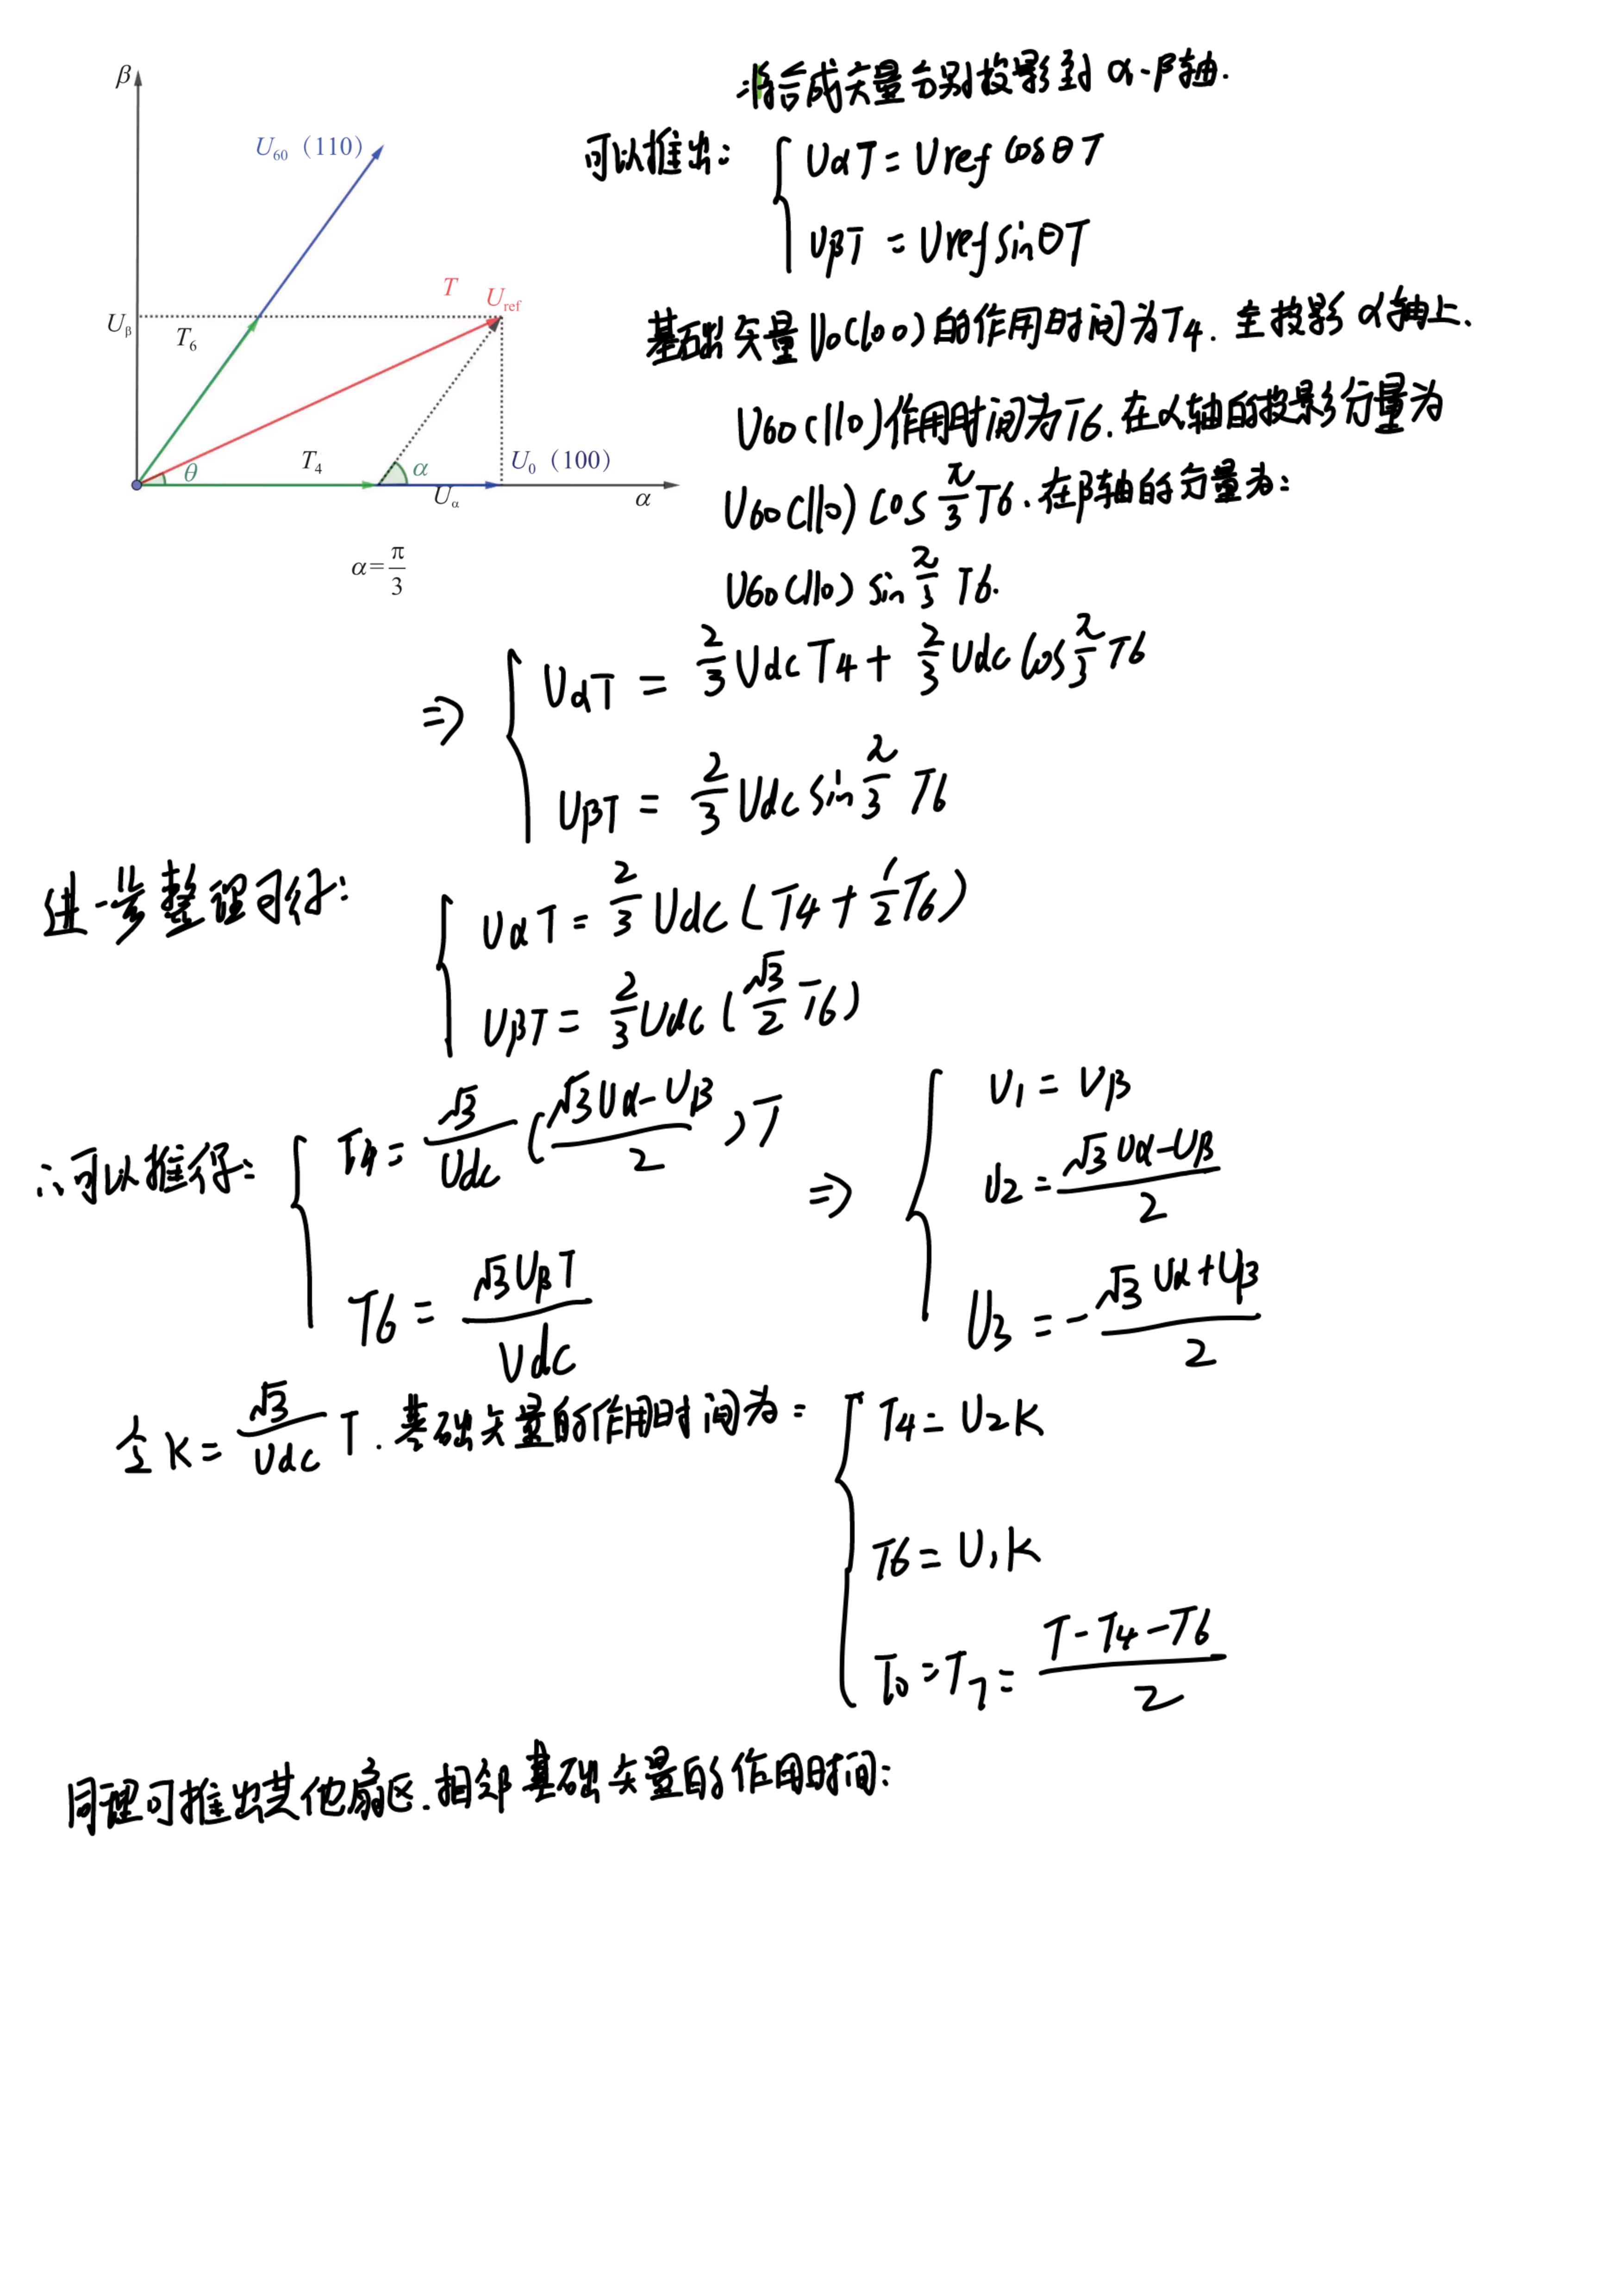 β
U60（110）
T
Uref
Uβ
T6
θ
T4
α
U0（100）
Uα
α
α=π/3
将合成矢量分别投影到 α-β轴.
可以推出:
{ UαT = Uref cosθT
UβT = Uref sinθT
基础矢量U0(100)的作用时间为T4. 全投影 α轴上.
U60(110)作用时间为T6.在α轴的投影分量为
U60(110) cos π/3 T6.在β轴的分量为:
U60(110) sin π/3 T6.
⇒ { UαT = 2/3 Udc T4 + 2/3 Udc cos π/3 T6
UβT = 2/3 Udc sin π/3 T6
进一步整理可得:
{ UαT = 2/3 Udc (T4 + 1/2 T6)
UβT = 2/3 Udc (√3/2 T6)
∴可以推得:
{ T4 = √3/Udc (√3Uα-Uβ/2) T
T6 = √3UβT/Udc
⇒ { U1 = Uβ
U2 = √3Uα-Uβ/2
U3 = -√3Uα+Uβ/2
令K = √3/Udc T. 基础矢量的作用时间为:
{ T4 = U2K
T6 = U1K
T0 = T7 = T-T4-T6/2
同理可推出其他扇区.相邻基础矢量的作用时间: